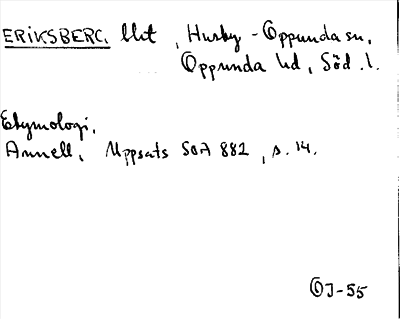 ERIKSBERG, slott, Husby-Oppunda sn,
Oppunda hd, Söd. l.
Etymologi,
Annell, Uppsats SOA 882, s. 14.
OJ-55